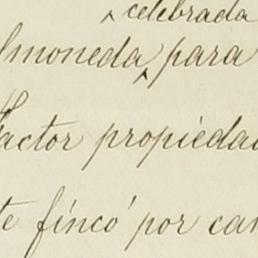 celebrada
lmoneda para
actor propiedad
te fincó por can